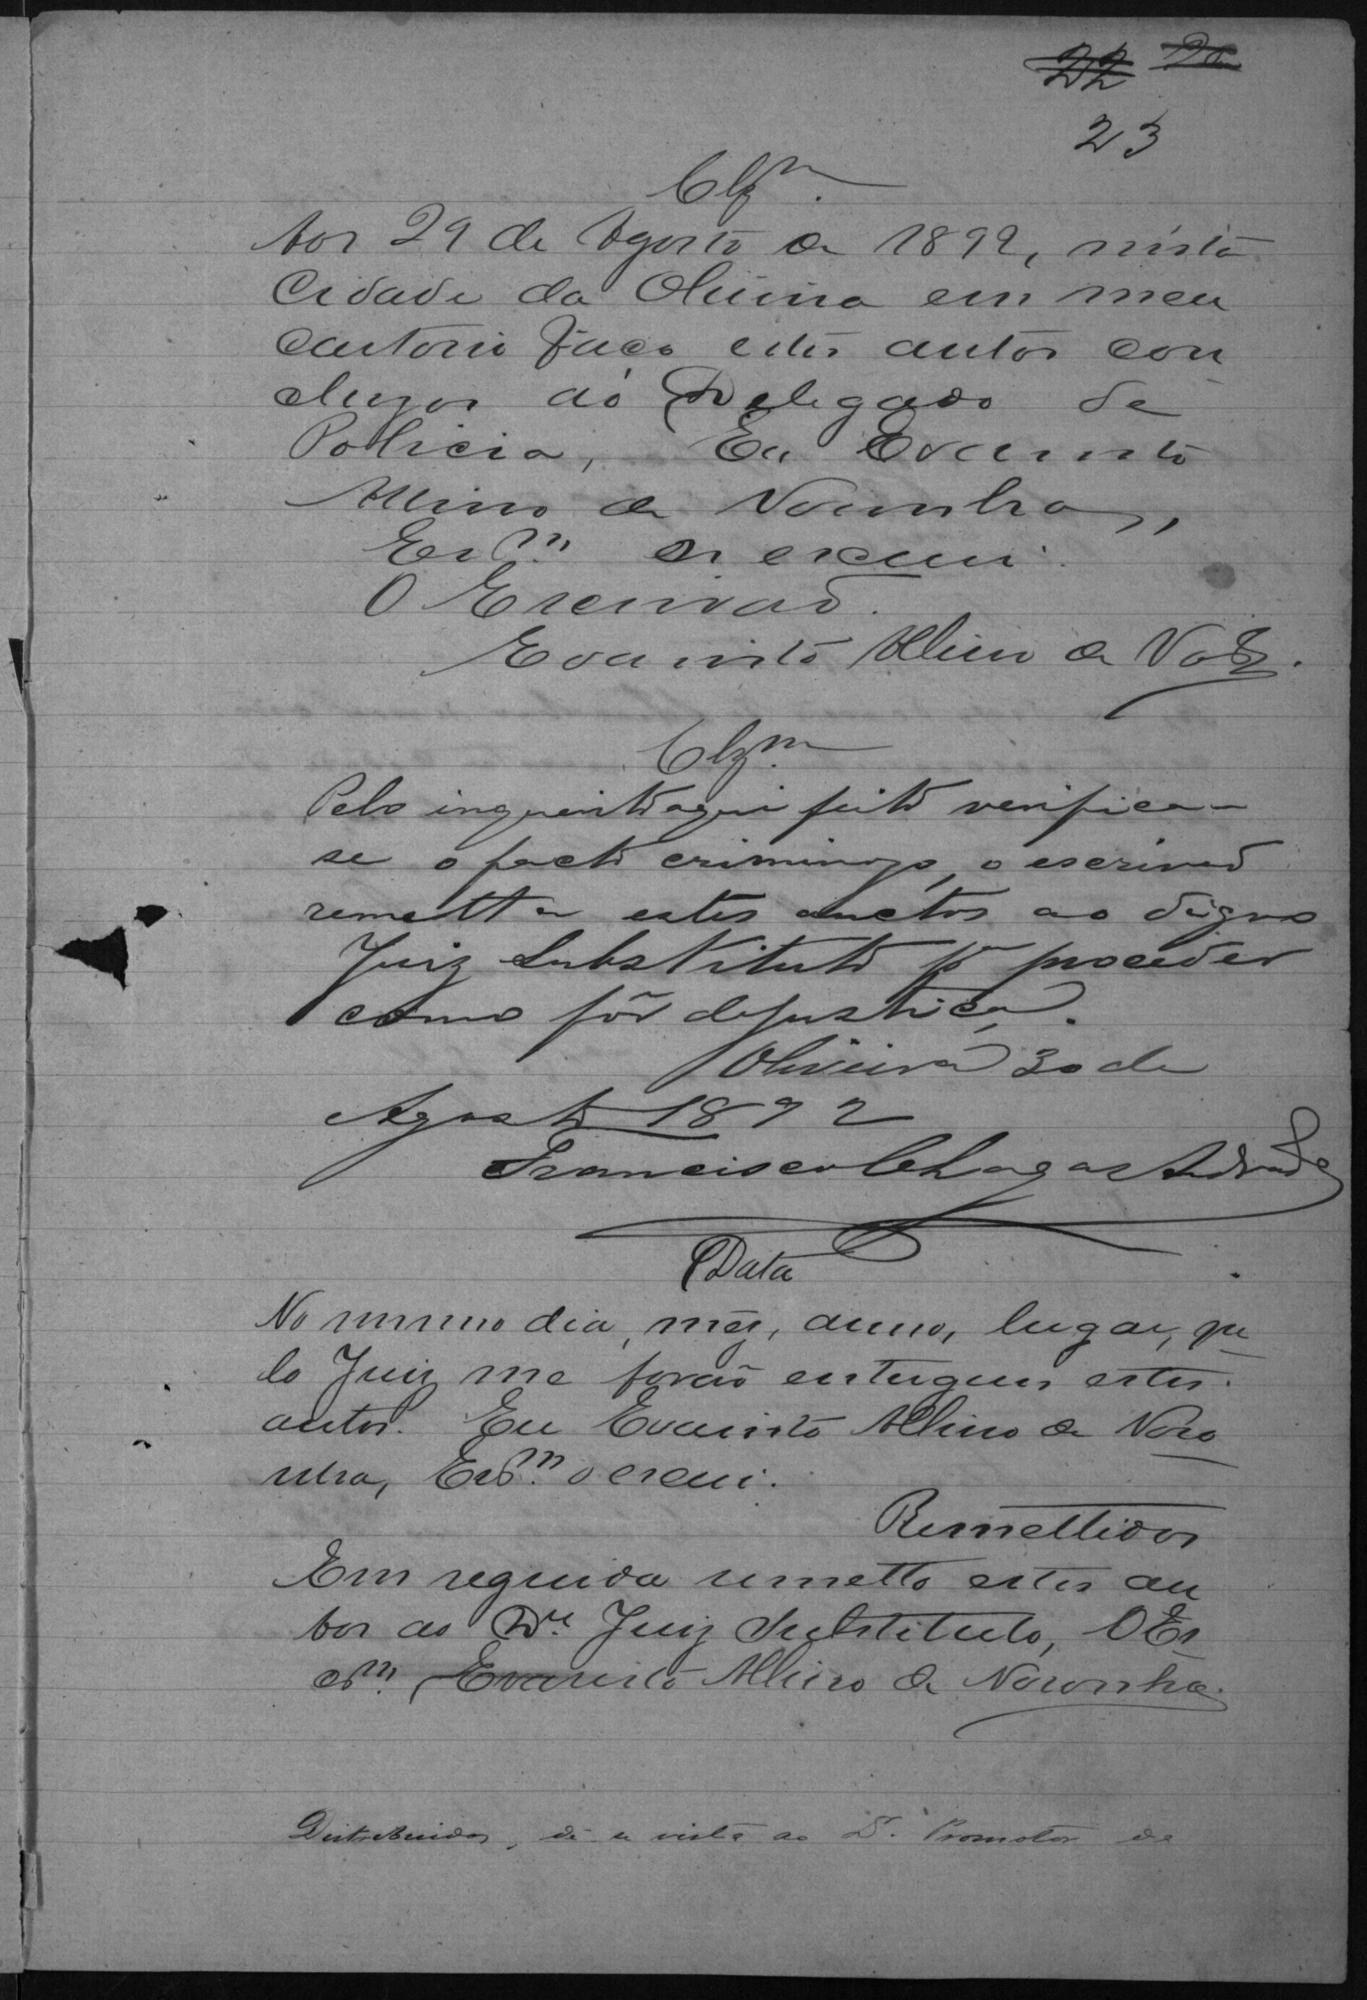 22 20
23
Clzm.
Aos 29 de Agosto de 1892, nesta
Cidade da Oliveira em meu
cartorio faço estes autos con
cluzos ao Delegado de
Policia, Eu Evaristo
Albino de Noronha,
Escm. o escrevi.
O Escrivão.
Evaristo Albino de Nora.
Clzm.
Pelo inquerito aqui feito verifica-
se o facto criminozo, o escrivão
remetta estes auctos ao digno
Juiz Substituto pa proceder
como fôr de justiça.
Oliveira 30 de
Agosto 1892
Francisco Chagas Andrade
Data
No mesmo dia, mez, anno, lugar, pe
lo Juiz me forão entregues estes
autos. Eu Evaristo Albino de Noro
nha, Escm. o escrevi.
Remettidos
Em seguida remetto estes au
tos ao Dr. Juiz Substituto, O Es
cm. Evaristo Albino de Noronha.
Distribuidos, dê-se vista ao Dr. Promotor de